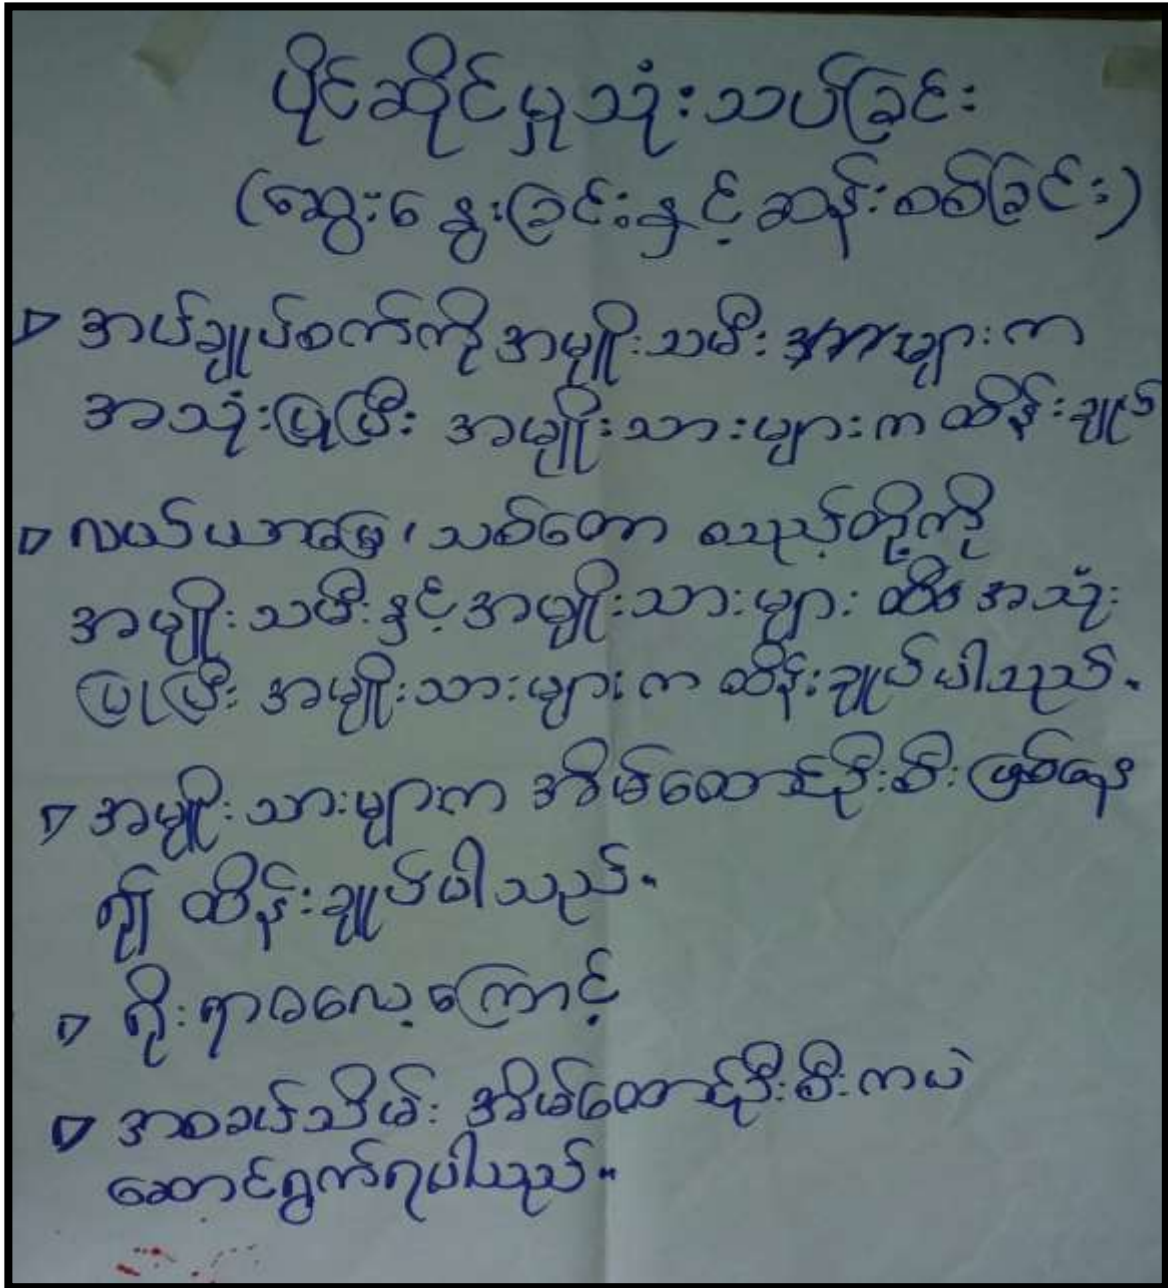 ပိုင်ဆိုင်မှုသုံးသပ်ခြင်း
(ဆွေးနွေးခြင်းနှင့်ဆန်းစစ်ခြင်း)
အပ်ချုပ်စက်ကို အမျိုးသမီး များက
အသုံးပြုပြီး အမျိုးသားများက ထိန်းချုပ်
လယ်ယာမြေ၊ သစ်တော စသည့်တို့ကို
အမျိုးသမီးနှင့် အမျိုးသားများ အသုံး
ပြုပြီး အမျိုးသားများက ထိန်းချုပ်ပါသည်။
အမျိုးသားများက အိမ်ထောင်ဦးစီး ဖြစ်နေ
၍ ထိန်းချုပ်ပါသည်။
ရိုးရာဓလေ့ကြောင့်
အစခပ်သိမ်း အိမ်ထောင်ဦးစီးကပဲ
ဆောင်ရွက်ရပါသည်။